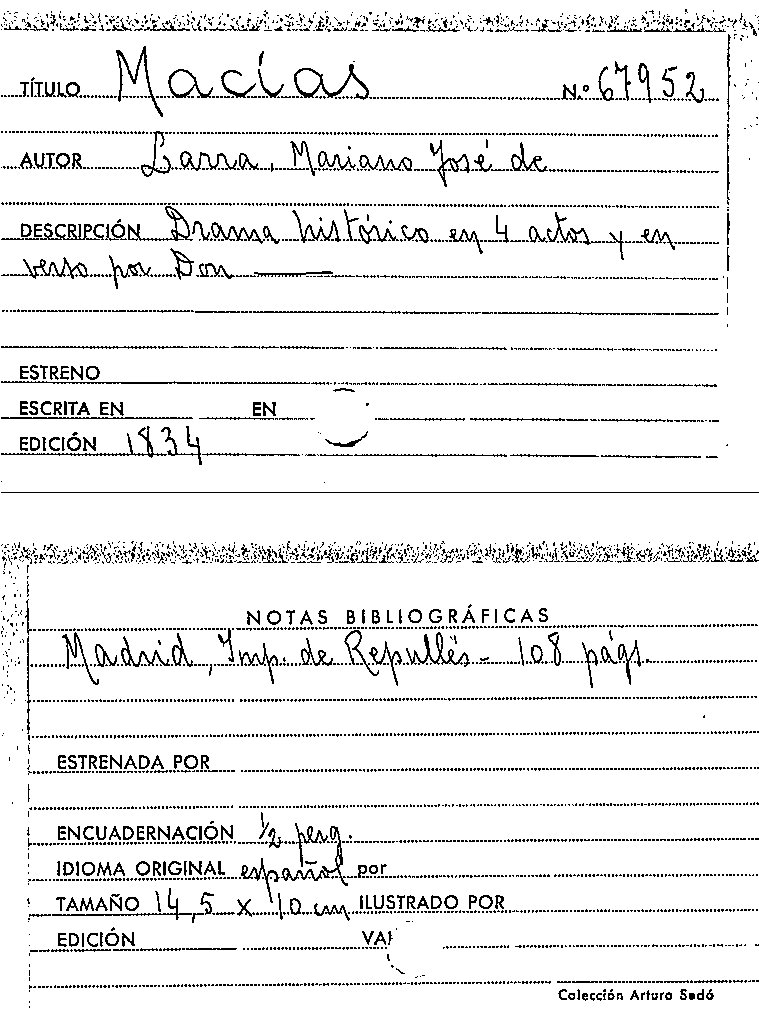 TÍTULO Macías N.º 67952
AUTOR Larra, Mariano José de
DESCRIPCIÓN Drama histórico en 4 actos y en
verso por Don ———
ESTRENO
ESCRITA EN EN
EDICIÓN 1834
NOTAS BIBLIOGRÁFICAS
Madrid, Imp. de Repullés - 108 págs.
ESTRENADA POR
ENCUADERNACIÓN 1/2 perg.
IDIOMA ORIGINAL español por
TAMAÑO 14,5 x 10 cm ILUSTRADO POR
EDICIÓN
Colección Arturo Sedó